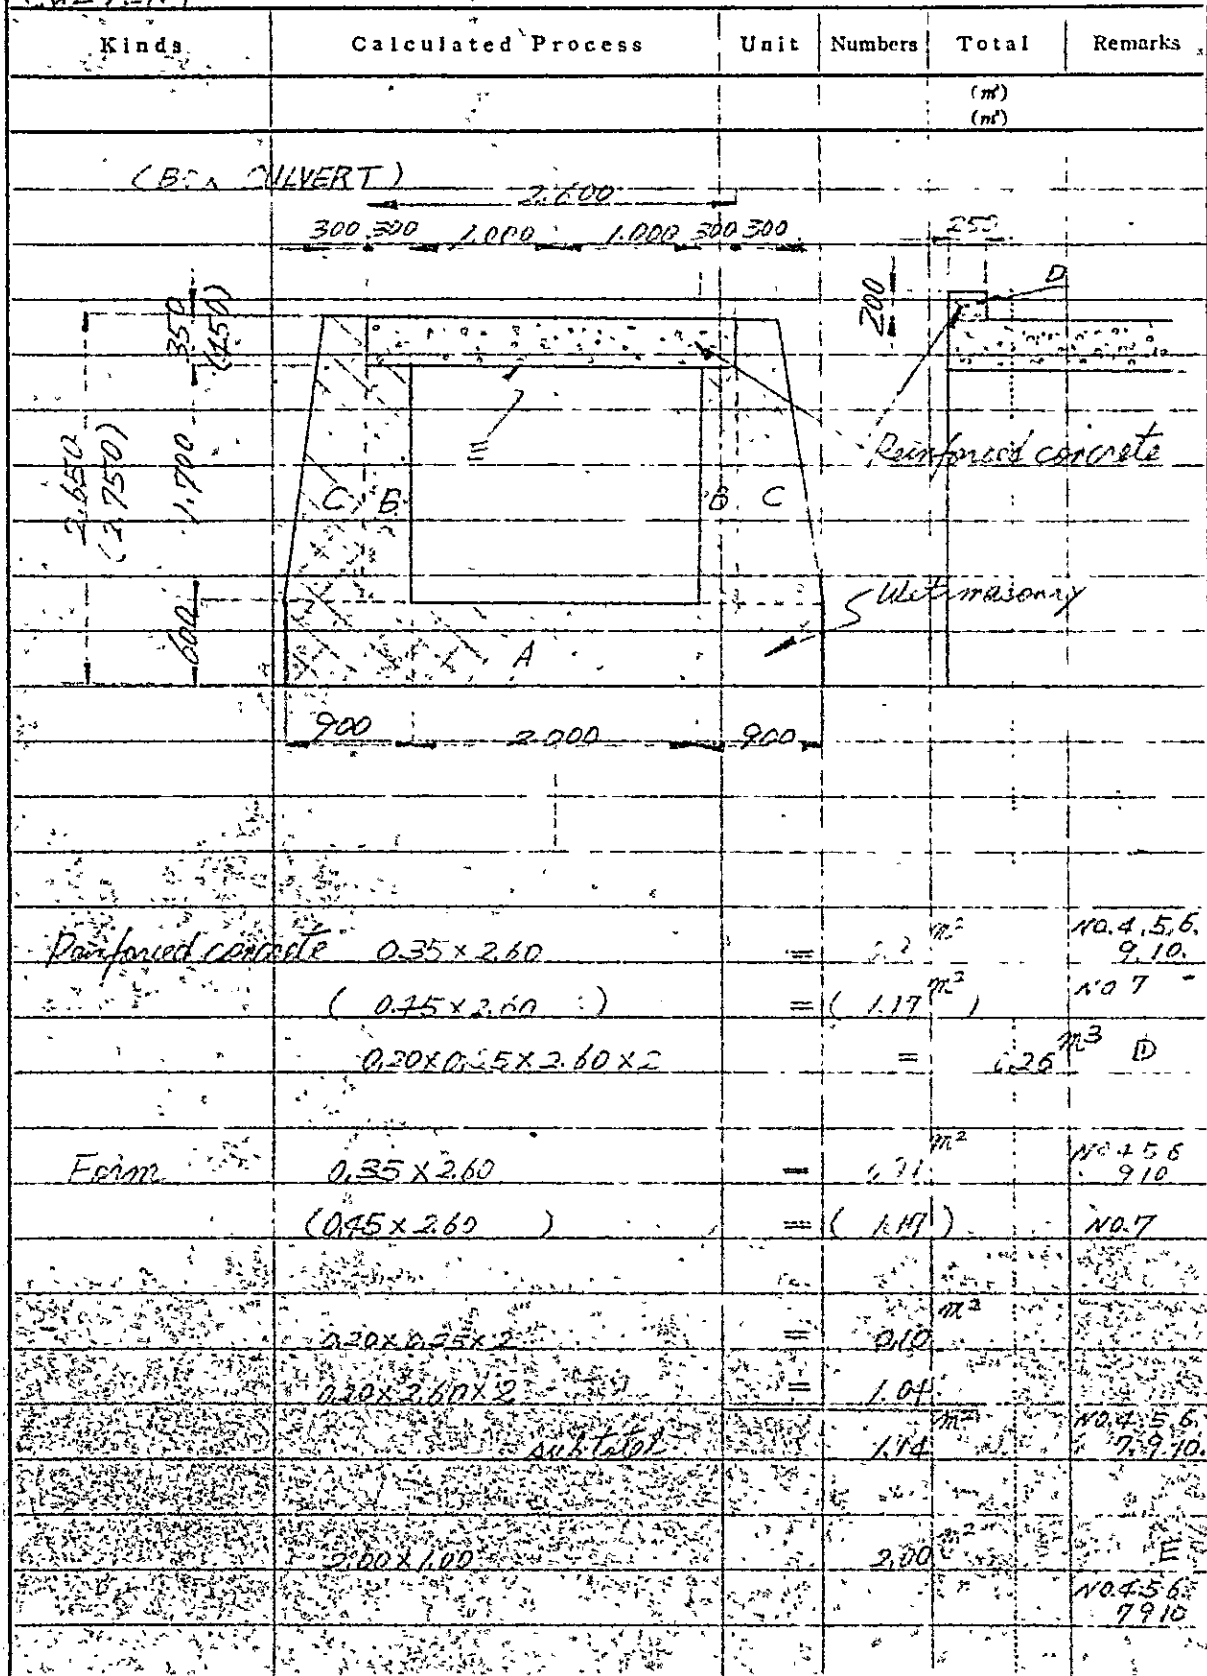 Kinds Calculated Process Unit Numbers Total Remarks
(m³)
(m²)
CULVERT)
2.600
300 300 1.000 1.000 300 300
250
200
D
350
(450)
2.650
(2.750)
1.700
600
E
Reinforced concrete
C B B C
Wet masonry
A
900 2.000 900
Reinforced concrete 0.35 x 2.60 = m² NO.4.5.6.
9.10.
( 0.45 x 2.60 ) = ( 1.17 m² ) NO 7
0.20 x 0.25 x 2.60 x 2 = 0.26 m³ D
Form 0.35 x 2.60 = 0.91 m² NO 4 5 6
9 10
(0.45 x 2.60 ) = ( 1.17 ) NO.7
0.20 x 0.25 x 2 = 0.10 m²
0.20 x 2.60 x 2 = 1.04
subtotal 1.14 m² NO.4.5.6.
7.9.10.
2.00 x 1.00 2.00 m² E
NO.4.5.6.
7 9 10